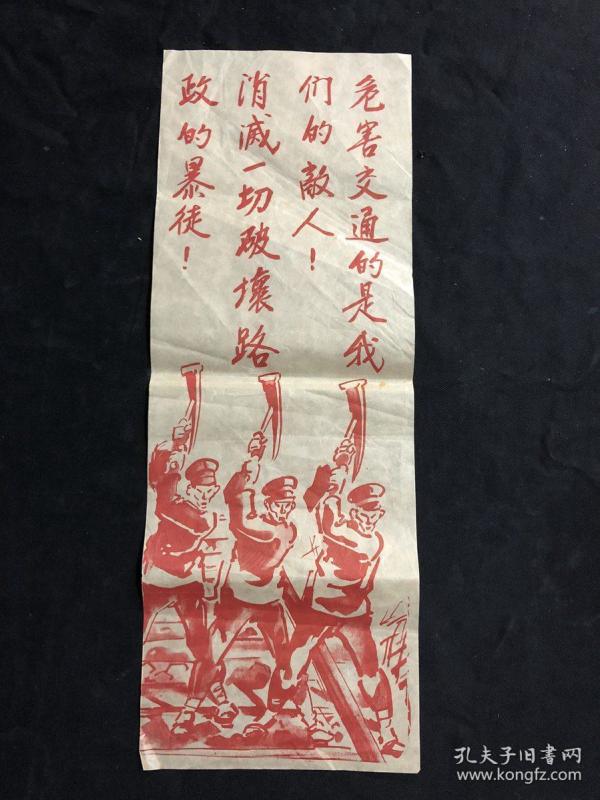 危害交通的是我
们的敵人！
消滅一切破壞路
政的暴徒！
孔夫子旧書网
www.kongfz.com